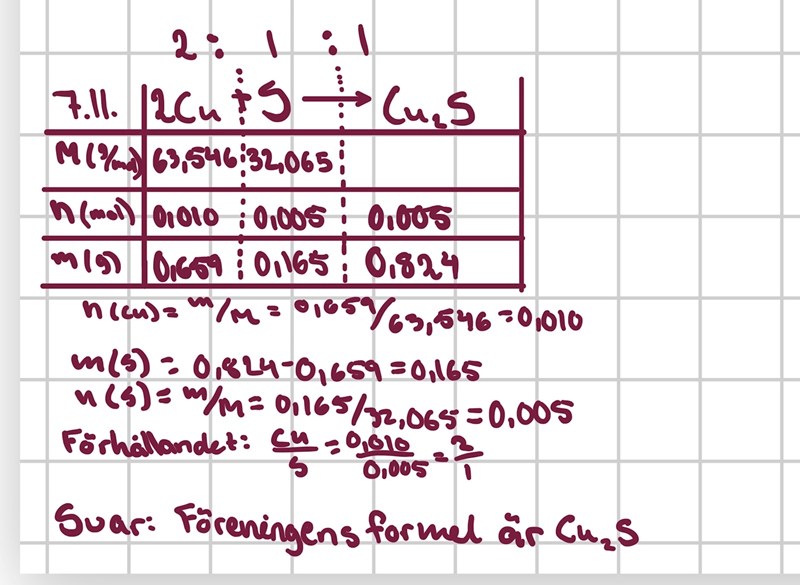 2 : 1 : 1
7.11. 2Cu + S → Cu₂S
M(g/mol) 63,546 32,065
n(mol) 0,010 0,005 0,005
m(g) 0,659 0,165 0,824
n(Cu)= m/M = 0,659/63,546 = 0,010
m(S) = 0,824-0,659=0,165
n(S)= m/M= 0,165/32,065=0,005
Förhållandet: Cu/S = 0,010/0,005 = 2/1
Svar: Föreningens formel är Cu₂S